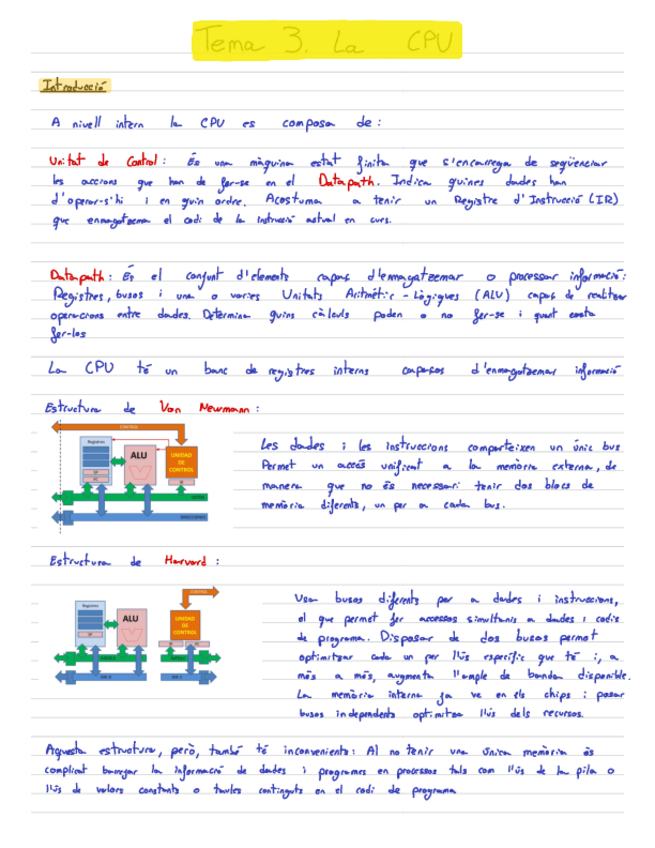 Tema 3. La CPU
Introducció
A nivell intern la CPU es composa de:
Unitat de Control: És una màquina estat finita que s'encarrega de seqüenciar
les accions que han de fer-se en el Datapath. Indica quines dades han
d'operar-s'hi i en quin ordre. Acostuma a tenir un Registre d'Instrucció (IR)
que enmagatzema el codi de la instrucció actual en curs.
Datapath: És el conjunt d'elements capaç d'enmagatzemar o processar informació:
Registres, busos i una o varies Unitats Aritmètic-Lògiques (ALU) capaç de realitzar
operacions entre dades. Determina quins càlculs poden o no fer-se i quant costa
fer-los
La CPU té un banc de registres interns capaços d'enmagatzemar informació
Estructura de Von Newmann:
CONTROL
Registros
ALU
UNIDAD
DE
CONTROL
SP
PC
IR
DATOS
DIRECCIONES
Les dades i les instruccions comparteixen un únic bus
Permet un accés unificat a la memòria externa, de
manera que no és necessari tenir dos blocs de
memòria diferents, un per a cada bus.
Estructura de Harvard:
CONTROL
Registros
ALU
UNIDAD
DE
CONTROL
SP
Usa busos diferents per a dades i instruccions,
el que permet fer accessos simultanis a dades i codis
de programa. Disposar de dos busos permet
optimitzar cada un per l'ús específic que té i, a
més a més, augmenta l'ample de banda disponible.
La memòria interna ja ve en els chips i posar
busos independents optimitza l'ús dels recursos.
Aquesta estructura, però, també té inconvenients: Al no tenir una única memòria és
complicat barrejar la informació de dades i programes en processos tals com l'ús de la pila o
l'ús de valors constants o taules continguts en el codi de programa